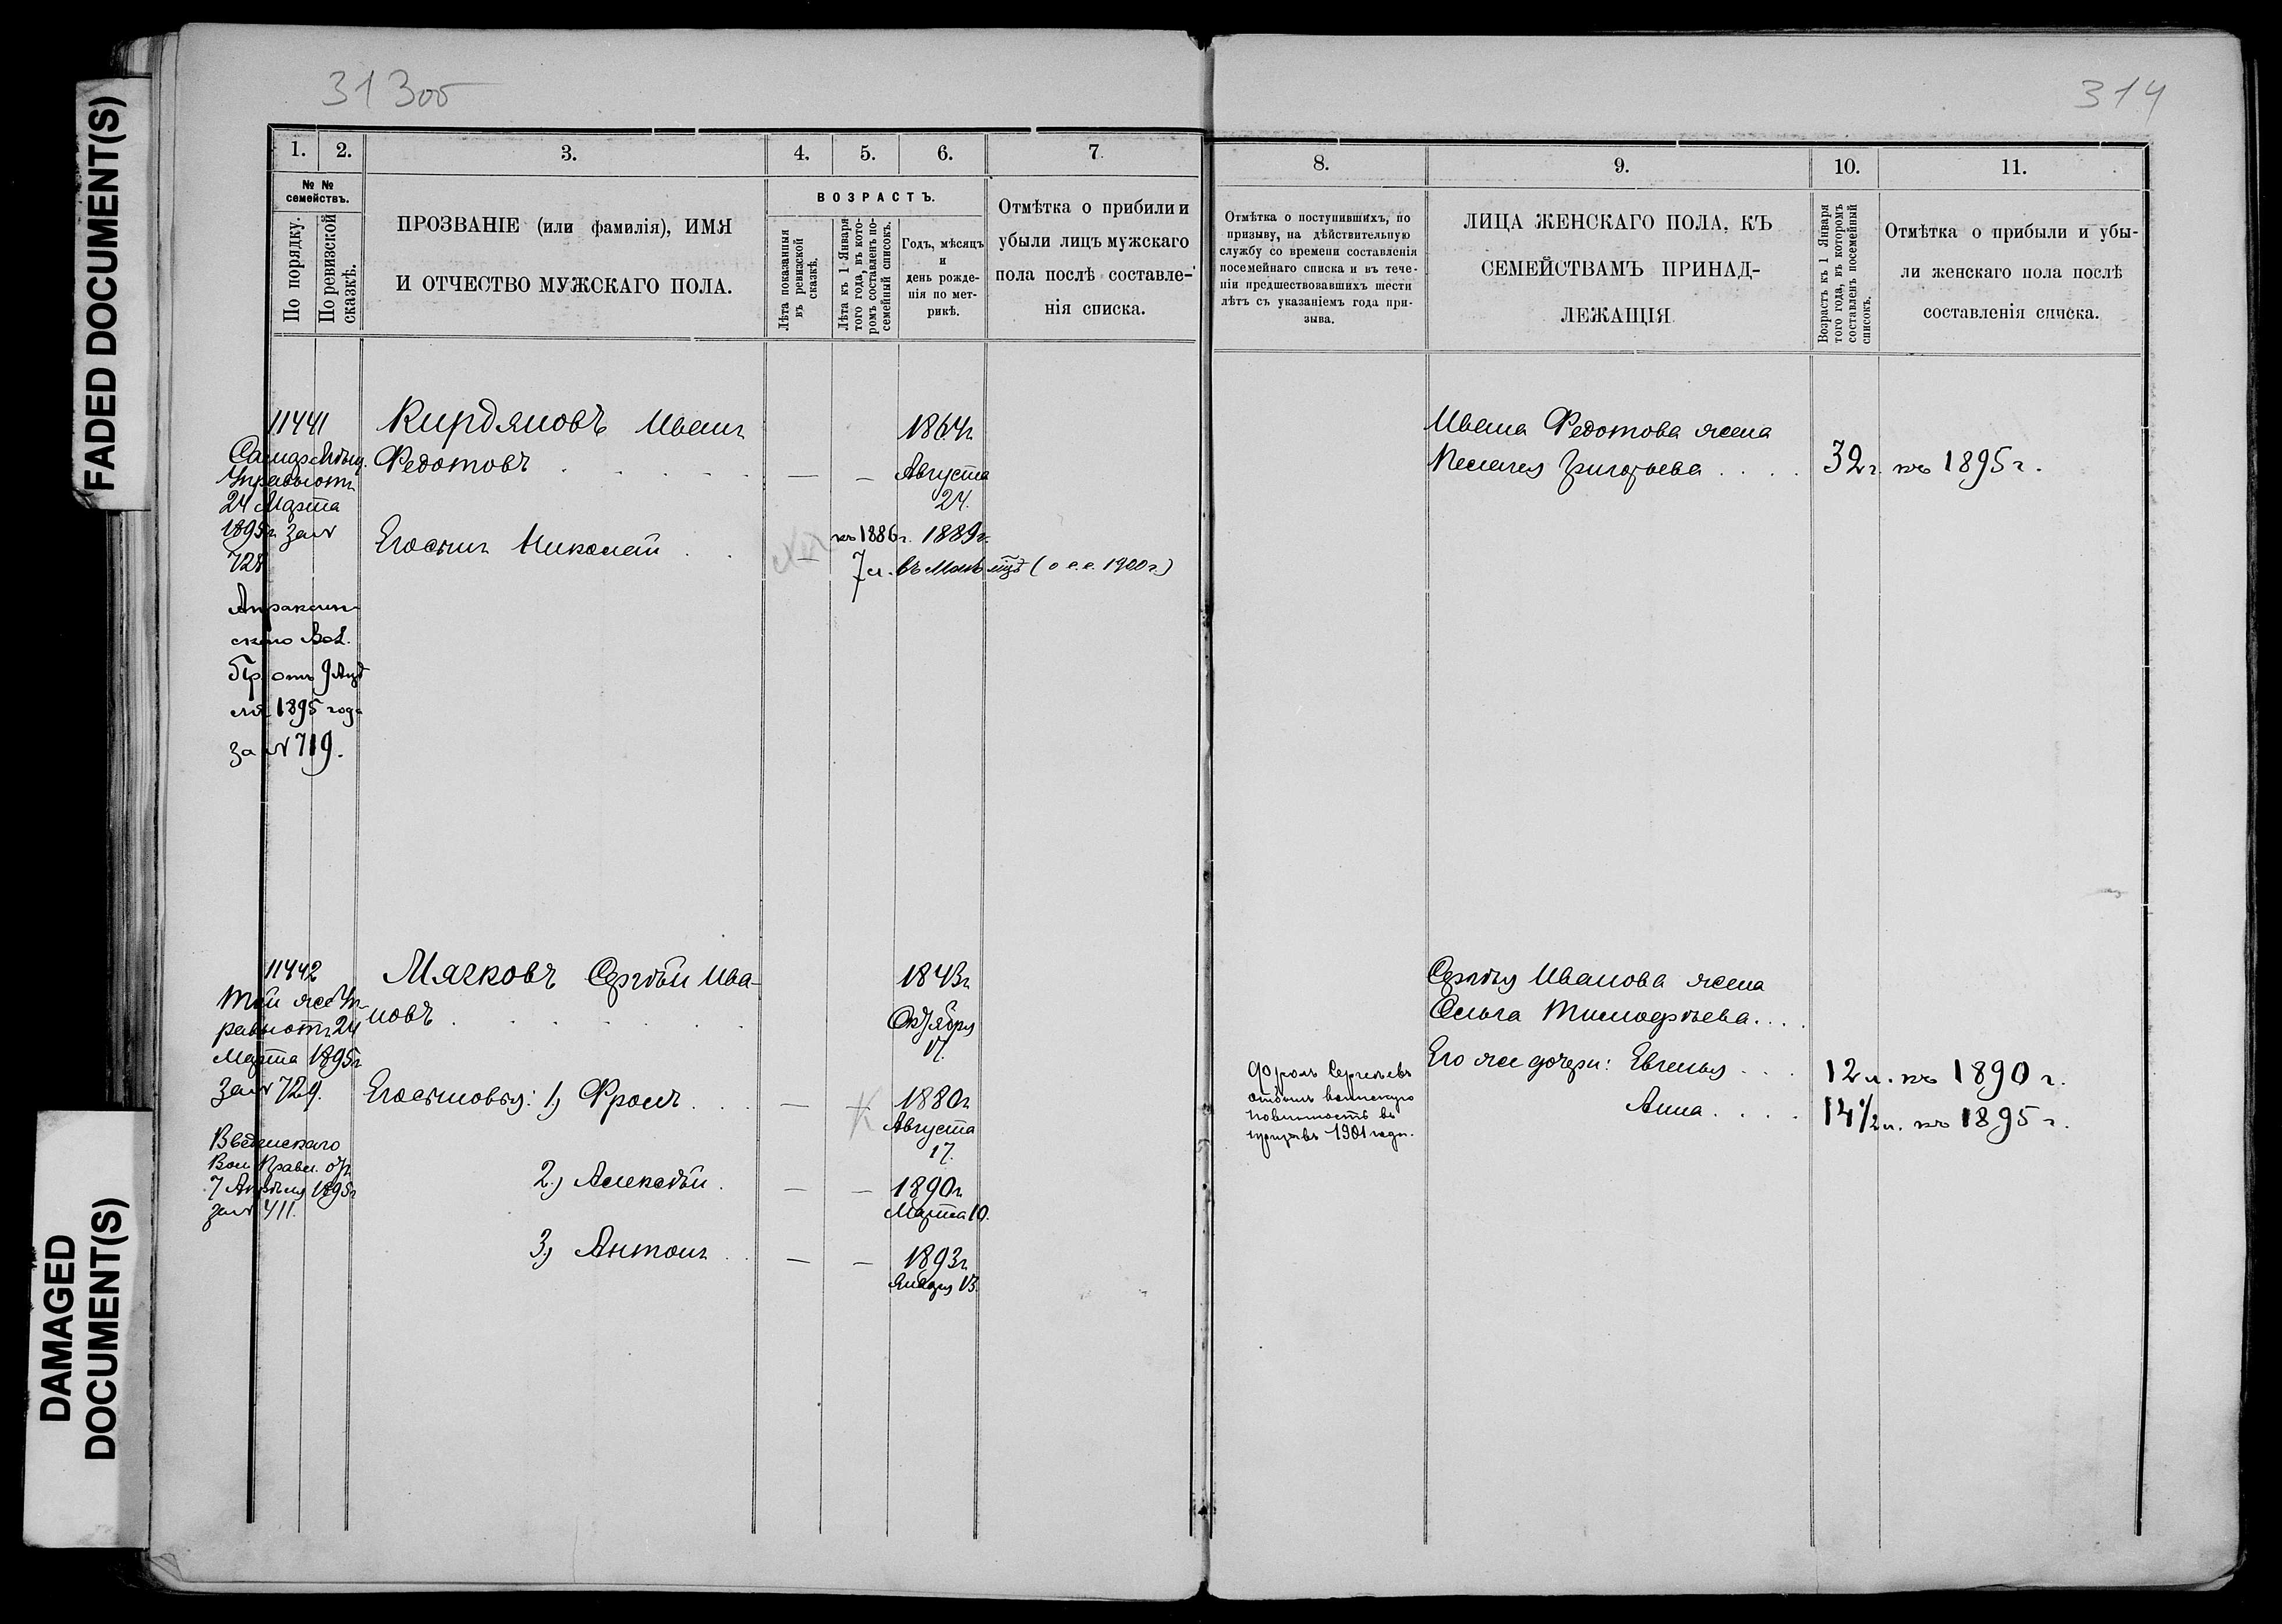 FADED DOCUMENT(S)
DAMAGED
DOCUMENT(S)
313об
314
1.
2.
3.
4.
5.
6.
7.
8.
9.
10.
11.
№ №
семействъ.
По порядку.
По ревизской
сказкѣ.
ПРОЗВАНІЕ (или фамилія), ИМЯ
И ОТЧЕСТВО МУЖСКАГО ПОЛА.
ВОЗРАСТЪ.
Лѣта показанныя
въ ревизской
сказкѣ.
Лѣта къ 1 Января
того года, въ кото-
ромъ составленъ по-
семейный списокъ.
Годъ, мѣсяцъ
и
день рожде-
нія по мет-
рикѣ.
Отмѣтка о прибыли и
убыли лицъ мужскаго
пола послѣ составле-
нія списка.
Отмѣтка о поступившихъ, по
призыву, на дѣйствительную
службу со времени составленія
посемейнаго списка и въ тече-
ніи предшествовавшихъ шести
лѣтъ съ указаніемъ года при-
зыва.
ЛИЦА ЖЕНСКАГО ПОЛА, КЪ
СЕМЕЙСТВАМЪ ПРИНАД-
ЛЕЖАЩІЯ
Возрастъ къ 1 Января
того года, въ которомъ
составленъ посемейный
списокъ.
Отмѣтка о прибыли и убы-
ли женскаго пола послѣ
составленія списка.
11441
Самар. Мѣщ.
Управы отъ
24 Марта
1895г. за №
728
Апраксин-
скаго Вол.
Пр. отъ 9 Апрѣ
ля 1895 года
за № 719.
Кирдяновъ Иванъ
Федотовъ
1864г
Августа
24.
Его сынъ Николай
къ 1886г. 1889г.
7 л.
1900г.)
Ивана Федотова жена
Пелагея Григорьева
32 г. къ 1895 г.
11442
Той же Уп-
равы отъ 24
Марта 1895г
за № 729.
Введенскаго
Вол. Правл. отъ
7 Апрѣля 1895г
за № 411.
Мячковъ Сергѣй Ива-
новъ
1843г
Октября
17.
Его сыновья: 1, Фролъ
1880г
Августа
17.
2, Алексѣй
1890г
Марта 10.
3, Антонъ
1893г
Января 13.
Фролъ Сергѣевъ
отбылъ воинскую
повинность въ
призывъ 1901 года.
Сергѣя Иванова жена
Ольга Тимофѣева
Его же дочери: Евгенья
12 л. къ 1890 г.
Анна
14½ л. къ 1895 г.